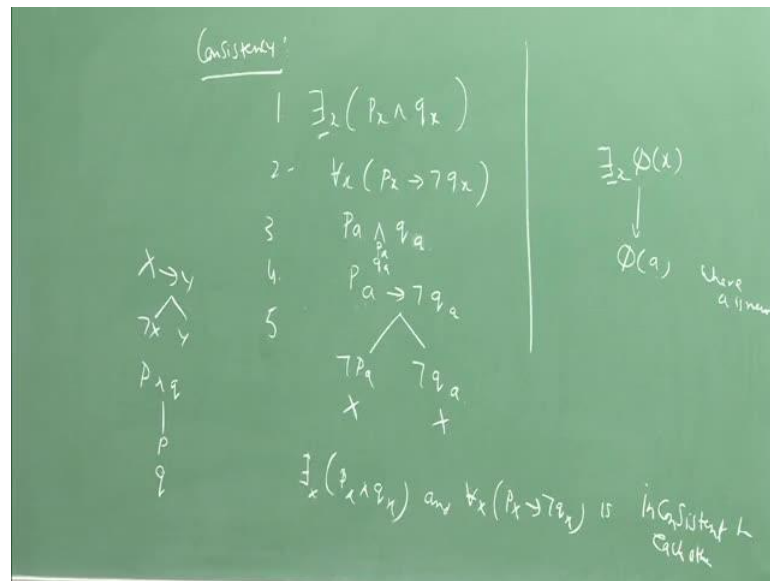 Consistency:
1 ∃x(Px ∧ qx)
2- ∀x(Px → ¬qx)
3 Pa ∧ qa
Pa
qa
4. Pa → ¬qa
5
¬Pa ¬qa
X X
X → y
¬x y
P ∧ q
P
q
∃x Ø(x)
Ø(a) where
a is new
∃x(Px ∧ qx) and ∀x(Px → ¬qx) is inconsistent
each other